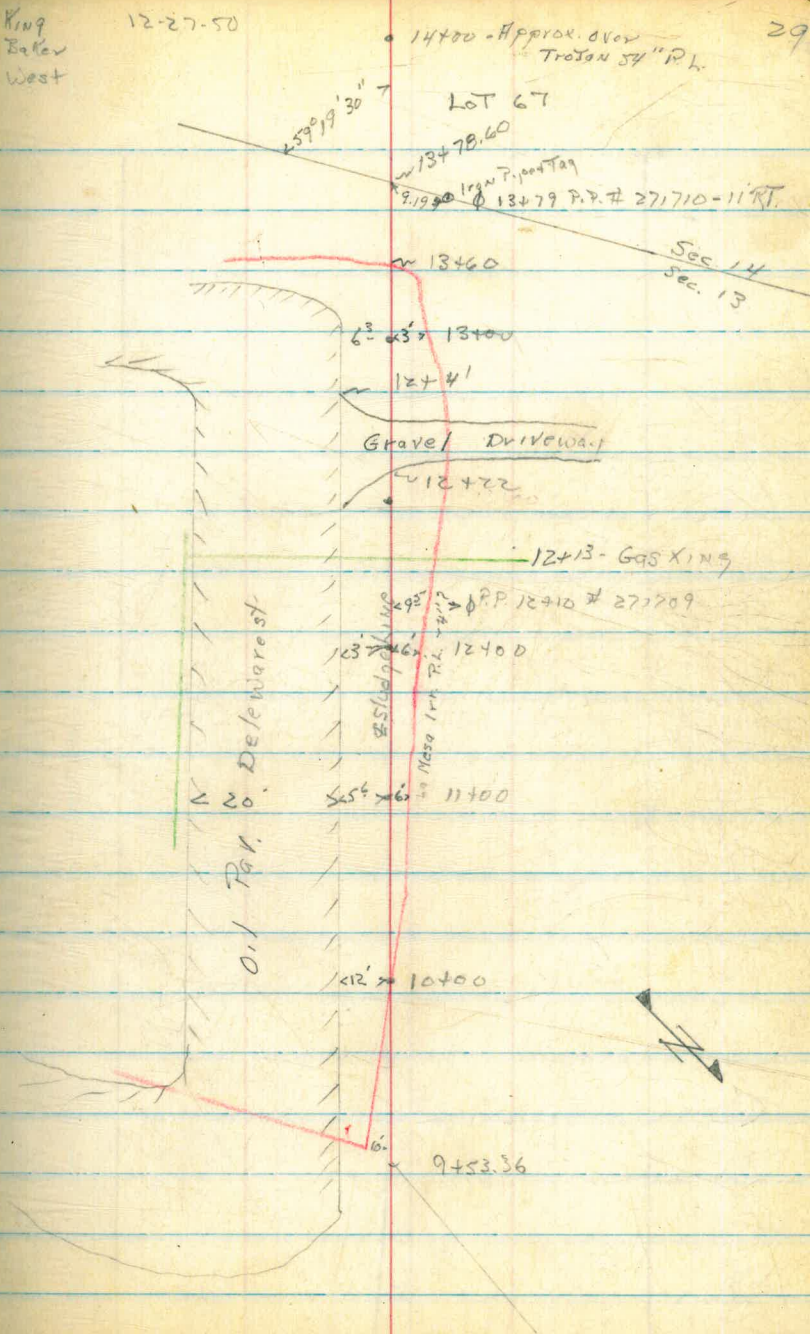 King
Baker
West
12-27-50
29
14+00 - Approx. over
Trojan 54" P.L.
Lot 67
59°19'30"
13+78.60
9.19
Iron Pipe & Tag
13+79 P.P. # 271710 - 11' RT.
Sec. 14
Sec. 13
13+60
6³ 3' 13+00
12+41
Gravel Driveway
12+22
12+13 - Gas Xing
9⁵ P.P. 12+10 # 271709
3' 6' 12+00
Sludge Line
La Mesa Irr. P.L.
Oil Pav. Delewarest
20' 5⁶ 6' 11+00
12' 10+00
N
10'
9+53.36